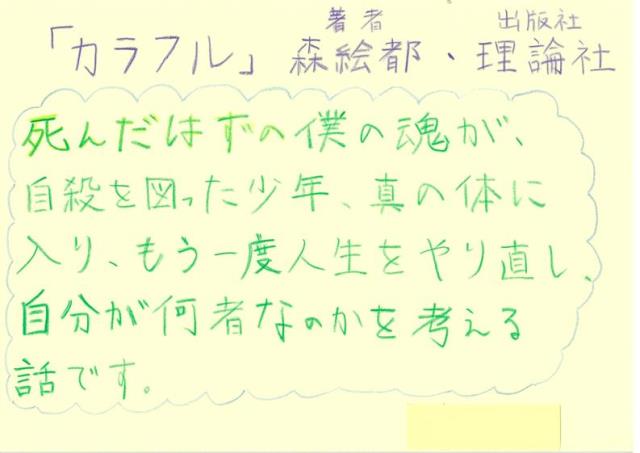 著者 出版社
「カラフル」 森絵都・理論社
死んだはずの僕の魂が、
自殺を図った少年、真の体に
入り、もう一度人生をやり直し、
自分が何者なのかを考える
話です。